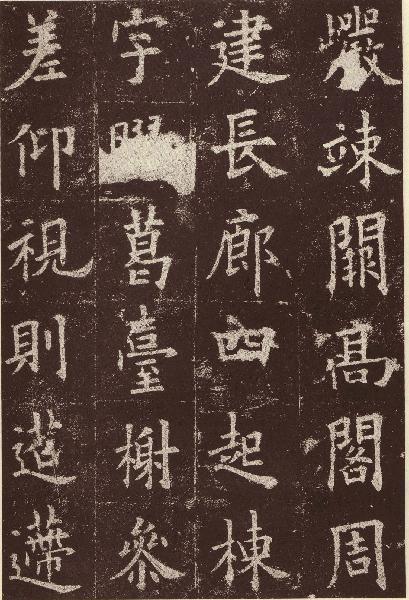 巖竦闕髙閣周
建長廊四起棟
宇葛臺榭參
差仰視則迢遰